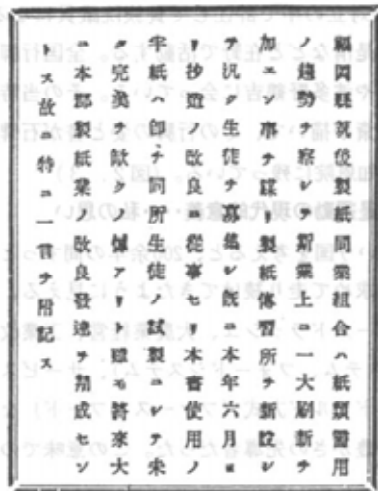 福岡縣筑後製紙同業組合ハ紙類需用
ノ趨勢ヲ察シテ斯業上ニ一大刷新ヲ
加エン事ヲ謀リ製紙傳習所ヲ新設シ
テ汎ク生徒ヲ募集シ既ニ本年六月ヨ
リ抄造ノ改良ニ從事セリ本書使用ノ
半紙ハ卽チ同所生徒ノ試製ニシテ未
タ完美ヲ缺クノ憾アリト雖モ將來大
ニ本郡製紙業ノ改良發達ヲ期成セン
トス故ニ特ニ一言ヲ附記ス